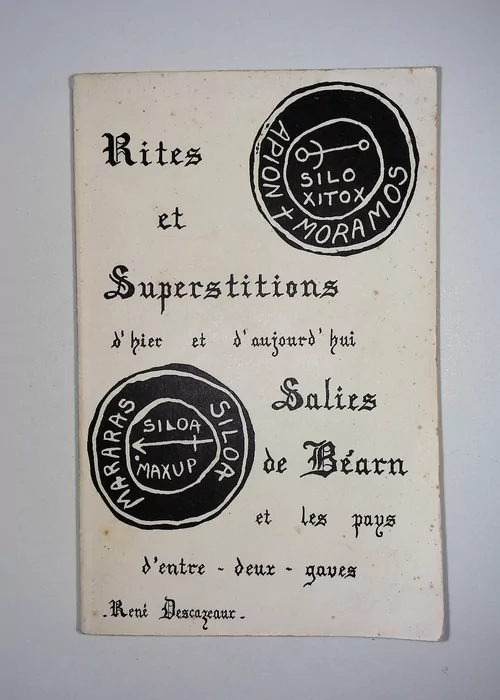 Rites
et
Superstitions
d'hier et d'aujourd'hui
Salies
de Béarn
et les pays
d'entre - deux - gaves
-René Descazeaux-
APION + MORAMOS
SILO
XITOX
MARARAS SILOA
SILOA
MAXUP